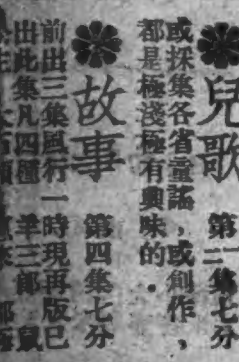 兒歌 第二集七分
或採集各省童謠，或創作，
都是極淺極有興味的．
故事 第四集七分
前出三集風行一時現再版已
出此集凡四種 羊三郎 鼠